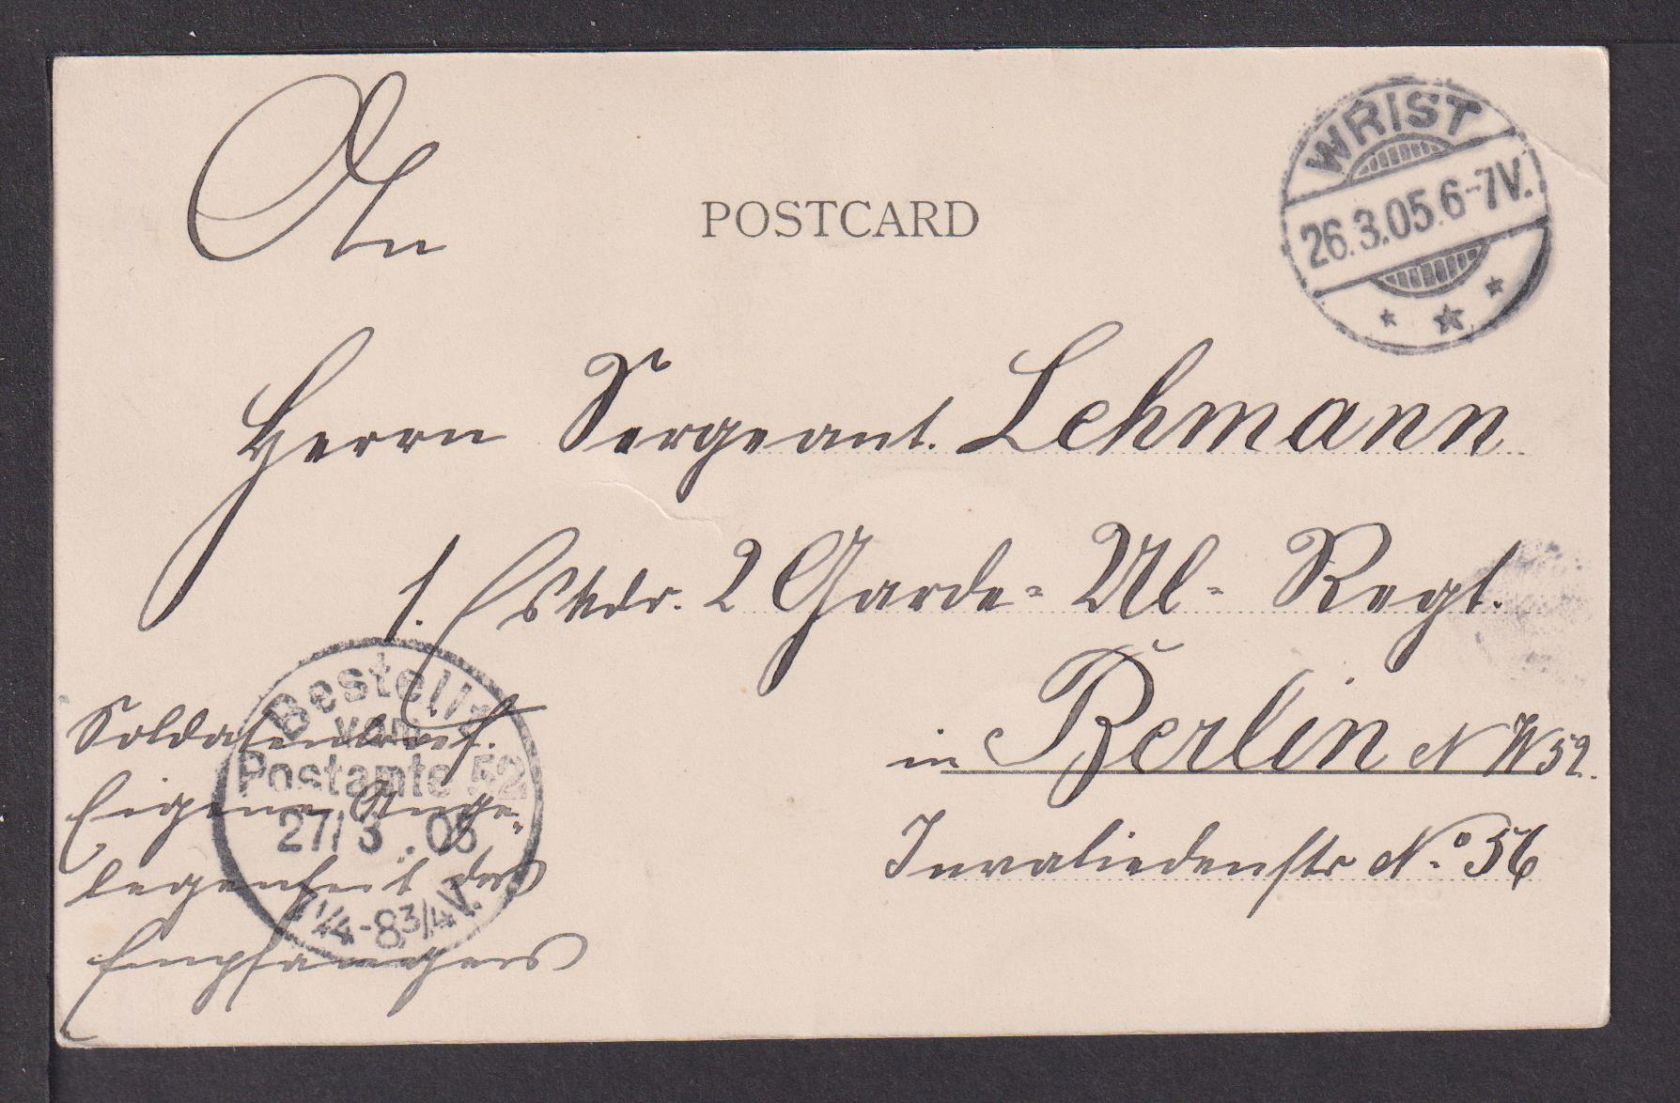 An
POSTCARD
WRIST
26.3.05.6-7V.
Herrn Sergeant. Lehmann
1. Eskdr. 2 Garde- Ul- Regt.
in Berlin N W 52.
Invaliedenstr No 56
Soldatenbrief.
Eigene Ange-
legenheit des
Empfängers
Bestellt
vom
Postamte 52
27/3.05
7¼-8¾V.